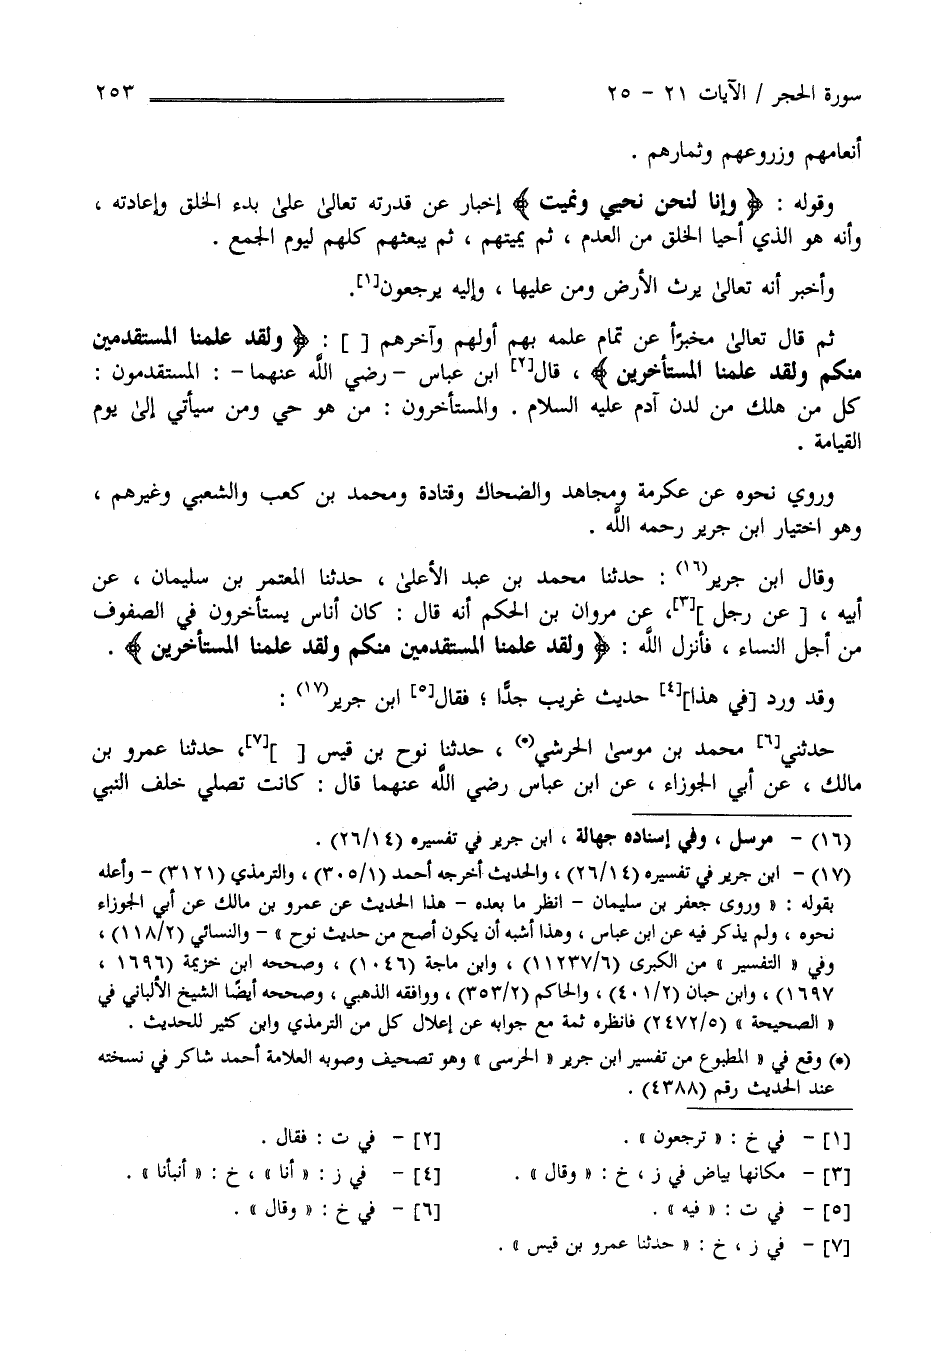 سورة الحجر / الآيات ٢١ - ٢٥ ٢٥٣
أنعامهم وزروعهم وثمارهم .
وقوله : ﴿ وإنا لنحن نحيي ونميت ﴾ إخبار عن قدرته تعالىٰ علىٰ بدء الخلق وإعادته ،
وأنه هو الذي أحيا الخلق من العدم ، ثم يميتهم ، ثم يبعثهم كلهم ليوم الجمع .
وأخبر أنه تعالىٰ يرث الأرض ومن عليها ، وإليه يرجعون[١].
ثم قال تعالىٰ مخبرًا عن تمام علمه بهم أولهم وآخرهم [ ] : ﴿ ولقد علمنا المستقدمين
منكم ولقد علمنا المستأخرين ﴾ ، قال[٢] ابن عباس -رضي اللَّه عنهما- : المستقدمون :
كل من هلك من لدن آدم عليه السلام . والمستأخرون : من هو حي ومن سيأتي إلىٰ يوم
القيامة .
وروي نحوه عن عكرمة ومجاهد والضحاك وقتادة ومحمد بن كعب والشعبي وغيرهم ،
وهو اختيار ابن جرير رحمه اللَّه .
وقال ابن جرير(١٦) : حدثنا محمد بن عبد الأعلىٰ ، حدثنا المعتمر بن سليمان ، عن
أبيه ، [ عن رجل ][٣]، عن مروان بن الحكم أنه قال : كان أناس يستأخرون في الصفوف
من أجل النساء ، فأنزل اللَّه : ﴿ ولقد علمنا المستقدمين منكم ولقد علمنا المستأخرين ﴾ .
وقد ورد [في هذا][٤] حديث غريب جدًّا ؛ فقال[٥] ابن جرير(١٧) :
حدثني[٦] محمد بن موسىٰ الحرشي(*) ، حدثنا نوح بن قيس [ ][٧]، حدثنا عمرو بن
مالك ، عن أبي الجوزاء ، عن ابن عباس رضي اللَّه عنهما قال : كانت تصلي خلف النبي
(١٦) - مرسل ، وفي إسناده جهالة ، ابن جرير في تفسيره (٢٦/١٤) .
(١٧) - ابن جرير في تفسيره (٢٦/١٤) ، والحديث أخرجه أحمد (٣٠٥/١) ، والترمذي (٣١٢١) - وأعله
بقوله : « وروى جعفر بن سليمان - انظر ما بعده - هذا الحديث عن عمرو بن مالك عن أبي الجوزاء
نحوه ، ولم يذكر فيه عن ابن عباس ، وهذا أشبه أن يكون أصح من حديث نوح » - والنسائي (١١٨/٢) ،
وفي « التفسير » من الكبرى (١١٢٣٧/٦) ، وابن ماجة (١٠٤٦) ، وصححه ابن خزيمة (١٦٩٦ ،
١٦٩٧) ، وابن حبان (٤٠١/٢) ، والحاكم (٣٥٣/٢) ، ووافقه الذهبي ، وصححه أيضًا الشيخ الألباني في
« الصحيحة » (٢٤٧٢/٥) فانظره ثمة مع جوابه عن إعلال كل من الترمذي وابن كثير للحديث .
(*) وقع في « المطبوع من تفسير ابن جرير « الحرسى » وهو تصحيف وصوبه العلامة أحمد شاكر في نسخته
عند الحديث رقم (٤٣٨٨) .
[١] - في خ : « ترجعون » . [٢] - في ت : فقال .
[٣] - مكانها بياض في ز ، خ : « وقال » . [٤] - في ز : « أنا » ، خ : « أنبأنا » .
[٥] - في ت : « فيه » . [٦] - في خ : « وقال » .
[٧] - في ز ، خ : « حدثنا عمرو بن قيس » .